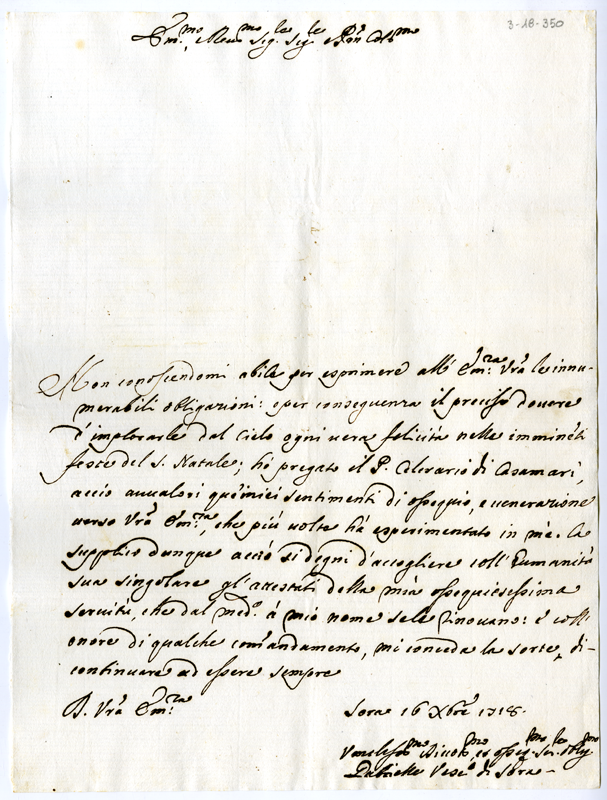 3-18-350
Em.mo, e Reu.mo Sig.re Sig.re P.ron Col.mo
Non conoscendomi abile per esprimere all' Em.za Vrã le innu-
merabili obligazioni: e per conseguenza il preciso douere
d'implorarle dal Cielo ogni uera felicità nelle imminẽti
feste del S. Natale; hò pregato il P. Celerario di Casamari,
acciò auualori què miei sentimenti di ossequio, e uenerazione
uerso Vrã Em.za, che più uolte hà esperimentato in mè. La
supplico dunque acciò si degni d'accogliere coll'Eumanità
sua singolare gl'attestati della mia ossequiosissima
seruitù, che dal med.o à mio nome sele rinouano: e coll'
onore di qualche comandamento, mi conceda la sorte di
continuare ad essere sempre
D. Vrã Em.za
Sora 16 Xbrẽ 1718.
Vmiliss.mo Diuot.mo, et osseq. Ser. oblig.
Gabrielle Vesc.o di Sora